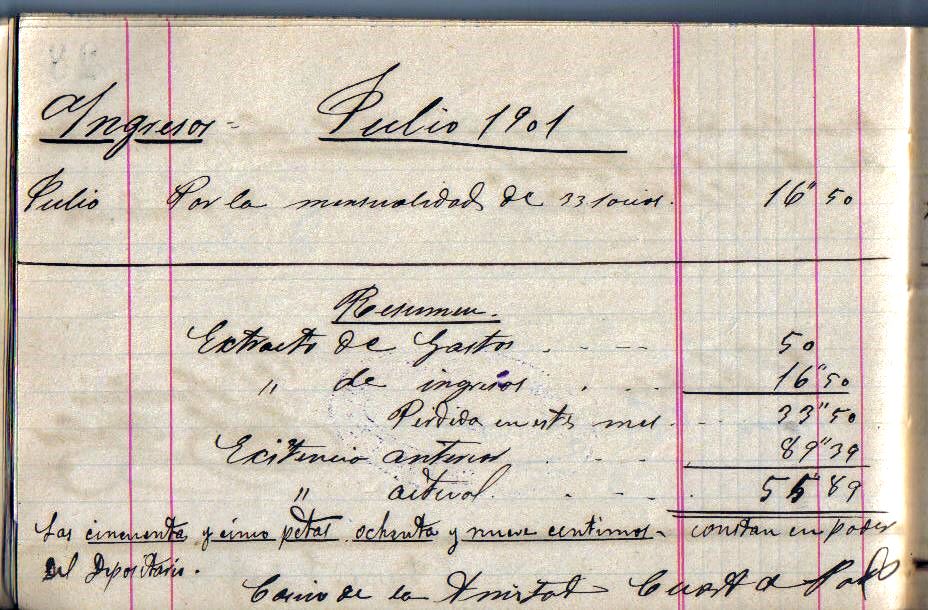 Ingresos = Julio 1901
Julio Por la mensualidad de 33 socios. 16" 50
Resumen.
Extracto de Gastos . - - - 50
" de ingresos . . - 16" 50
Perdida en este mes . - - 33" 50
Existencia anterior . - - 89" 39
" actual . . - - . 55" 89
Las cincuenta y cinco petas. ochenta y nueve centimos - constan en poder
del Depositario.
Casino de la Amistad